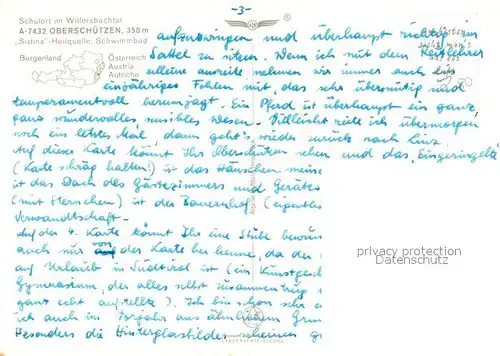 -3-
Schulerl im Willersbachtal
A-7432 OBERSCHÜTZEN, 350 m
„Sixtina"-Heilquelle, Schwimmbad
Burgenland
Österreich
Austria
Autriche
aufzuzwingen und überhaupt richtig im
Sattel zu sitzen. Wenn ich mit dem Reitlehrer
alleine ausreite nehmen wir immer auch
einjähriges Fohlen mit, das sehr übermütig und
temperamentvoll herumjagt. Ein Pferd ist überhaupt ein ganz,
ganz wundervolles, sensibles Wesen. Vielleicht reite ich übermorgen
noch ein letztes Mal, dann geht's wieder zurück nach Linz.
Auf dieser Karte könnt Ihr Oberschützen sehen und das „Eingeringelte
(Karte schräg halten!) ist das Häuschen meine
ist das Dach des Gästezimmers und Geräte
(mit Herrschen) ist der Bauernhof (eigentlich
Verwandtschaft-
Auf der 4. Karte könnt Ihr eine Stube bewun
auch nur von der Karte her kenne, da der
auf Urlaub in Südtirol ist (ein Kunstgesch
Gymnasium, der alles selbst zusammentrug
ganz echt aufstellte). Ich bin schon sehr
ich auch im Vorjahr aus ähnlichem Grun
Besonders die Hinterglasbilder scheinen
privacy protection
Datenschutz